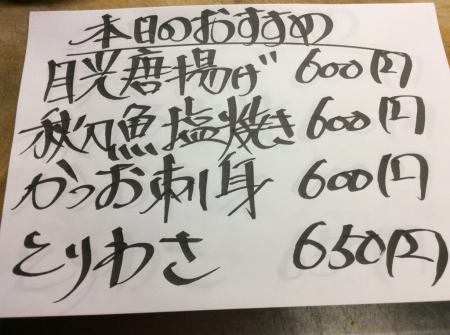 本日のおすすめ
目光唐揚げ 600円
秋刀魚塩焼き 600円
かつお刺身 600円
とりわさ 650円